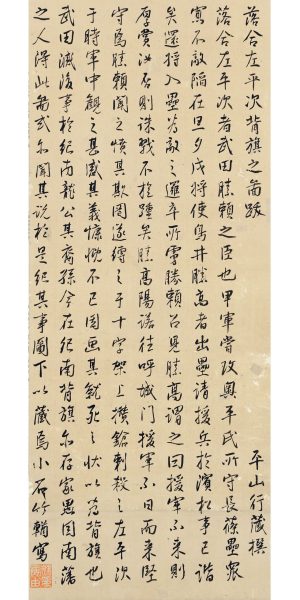 落合左平次背旗之圖跋
平山行藏撰
落合左平次者武田勝頼之臣也甲軍嘗攻奥平氏所守長篠壘衆
寡不敵陥在旦夕戍将使鳥井勝高者出壘請援兵於濱松事已諧
矣還将入壘為敵之邏卒所虜勝頼召見勝高謂之曰援軍不来則
厚賞汝否則誅戮不於踵矣勝高陽諾往呼城門援軍不日而来堅
守焉勝頼聞之憤其欺罔遂縛之于十字架上攢鎗刺殺之左平次
于時軍中観之甚感其義慷慨不已因画其就死之状以為背旗也
武田滅後事於紀南龍公其裔孫今在紀南背旗尓存家愚因南藩
之人得此圖或尓聞其説於是紀其事圖下以藏焉小石竹輔寫